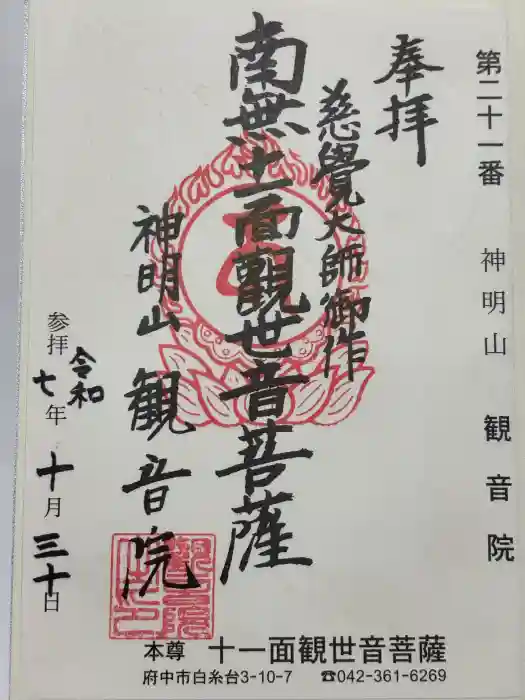 第二十一番　神明山　観音院
奉拝
慈覺大師御作
南無十一面觀世音菩薩
神明山　観音院
参拝　令和七年十月三十日
本尊　十一面観世音菩薩
府中市白糸台3-10-7　☎042-361-6269